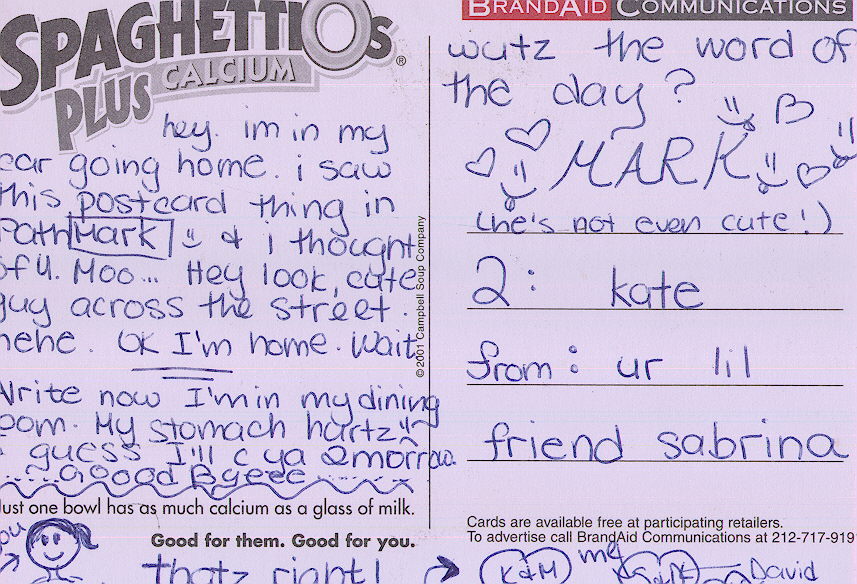 SPAGHETTIOS®
PLUS CALCIUM
hey. im in my
car going home. i saw
this postcard thing in
PathMark & i thought
of u. Moo... Hey look, cute
guy across the street.
hehe. OK I'm home. Wait
Write now I'm in my dining
room. My stomach hurtz
i guess I'll c ya 2morrow.
...Goood Byeee...
Just one bowl has as much calcium as a glass of milk.
Good for them. Good for you.
you
thatz right!
©2001 Campbell Soup Company
BRANDAID COMMUNICATIONS
wutz the word of
the day?
MARK
(he's not even cute!)
2: kate
from: ur lil
friend sabrina
Cards are available free at participating retailers.
To advertise call BrandAid Communications at 212-717-919
K&M
me
David